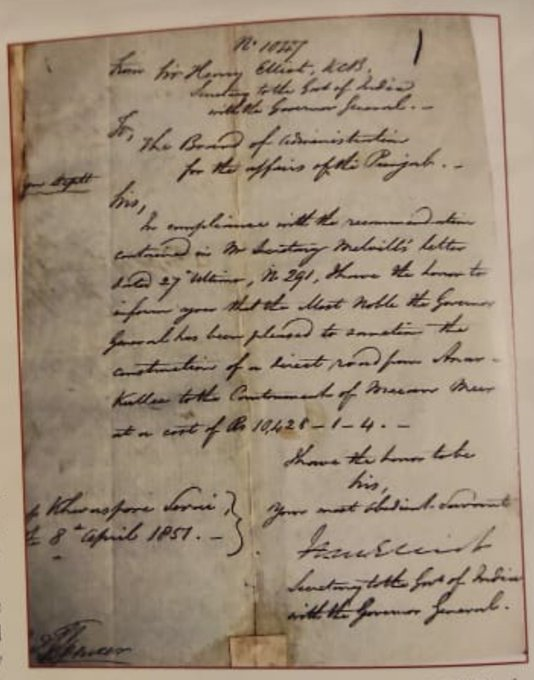 No 1027
From Sir Henry Elliot, KCB,
Secretary to the Govt of India
with the Governor General. -
To,
The Board of Administration
for the affairs of the Punjab. -
Deptt
Sirs,
In compliance with the recommendation
contained in Mr Secretary Melvill's letter
dated 27 Ultimo, No 291, I have the honor to
inform you that the Most Noble the Governor
General has been pleased to sanction the
construction of a direct road from Anar-
Kullee to the Cantonment of Meean Meer
at a cost of Rs 10,428-1-4. -
I have the honor to be
Sirs,
Your most obedient Servant
Secretary to the Govt of India
with the Governor General.
Khwaspore Serai,
8th April 1851. -